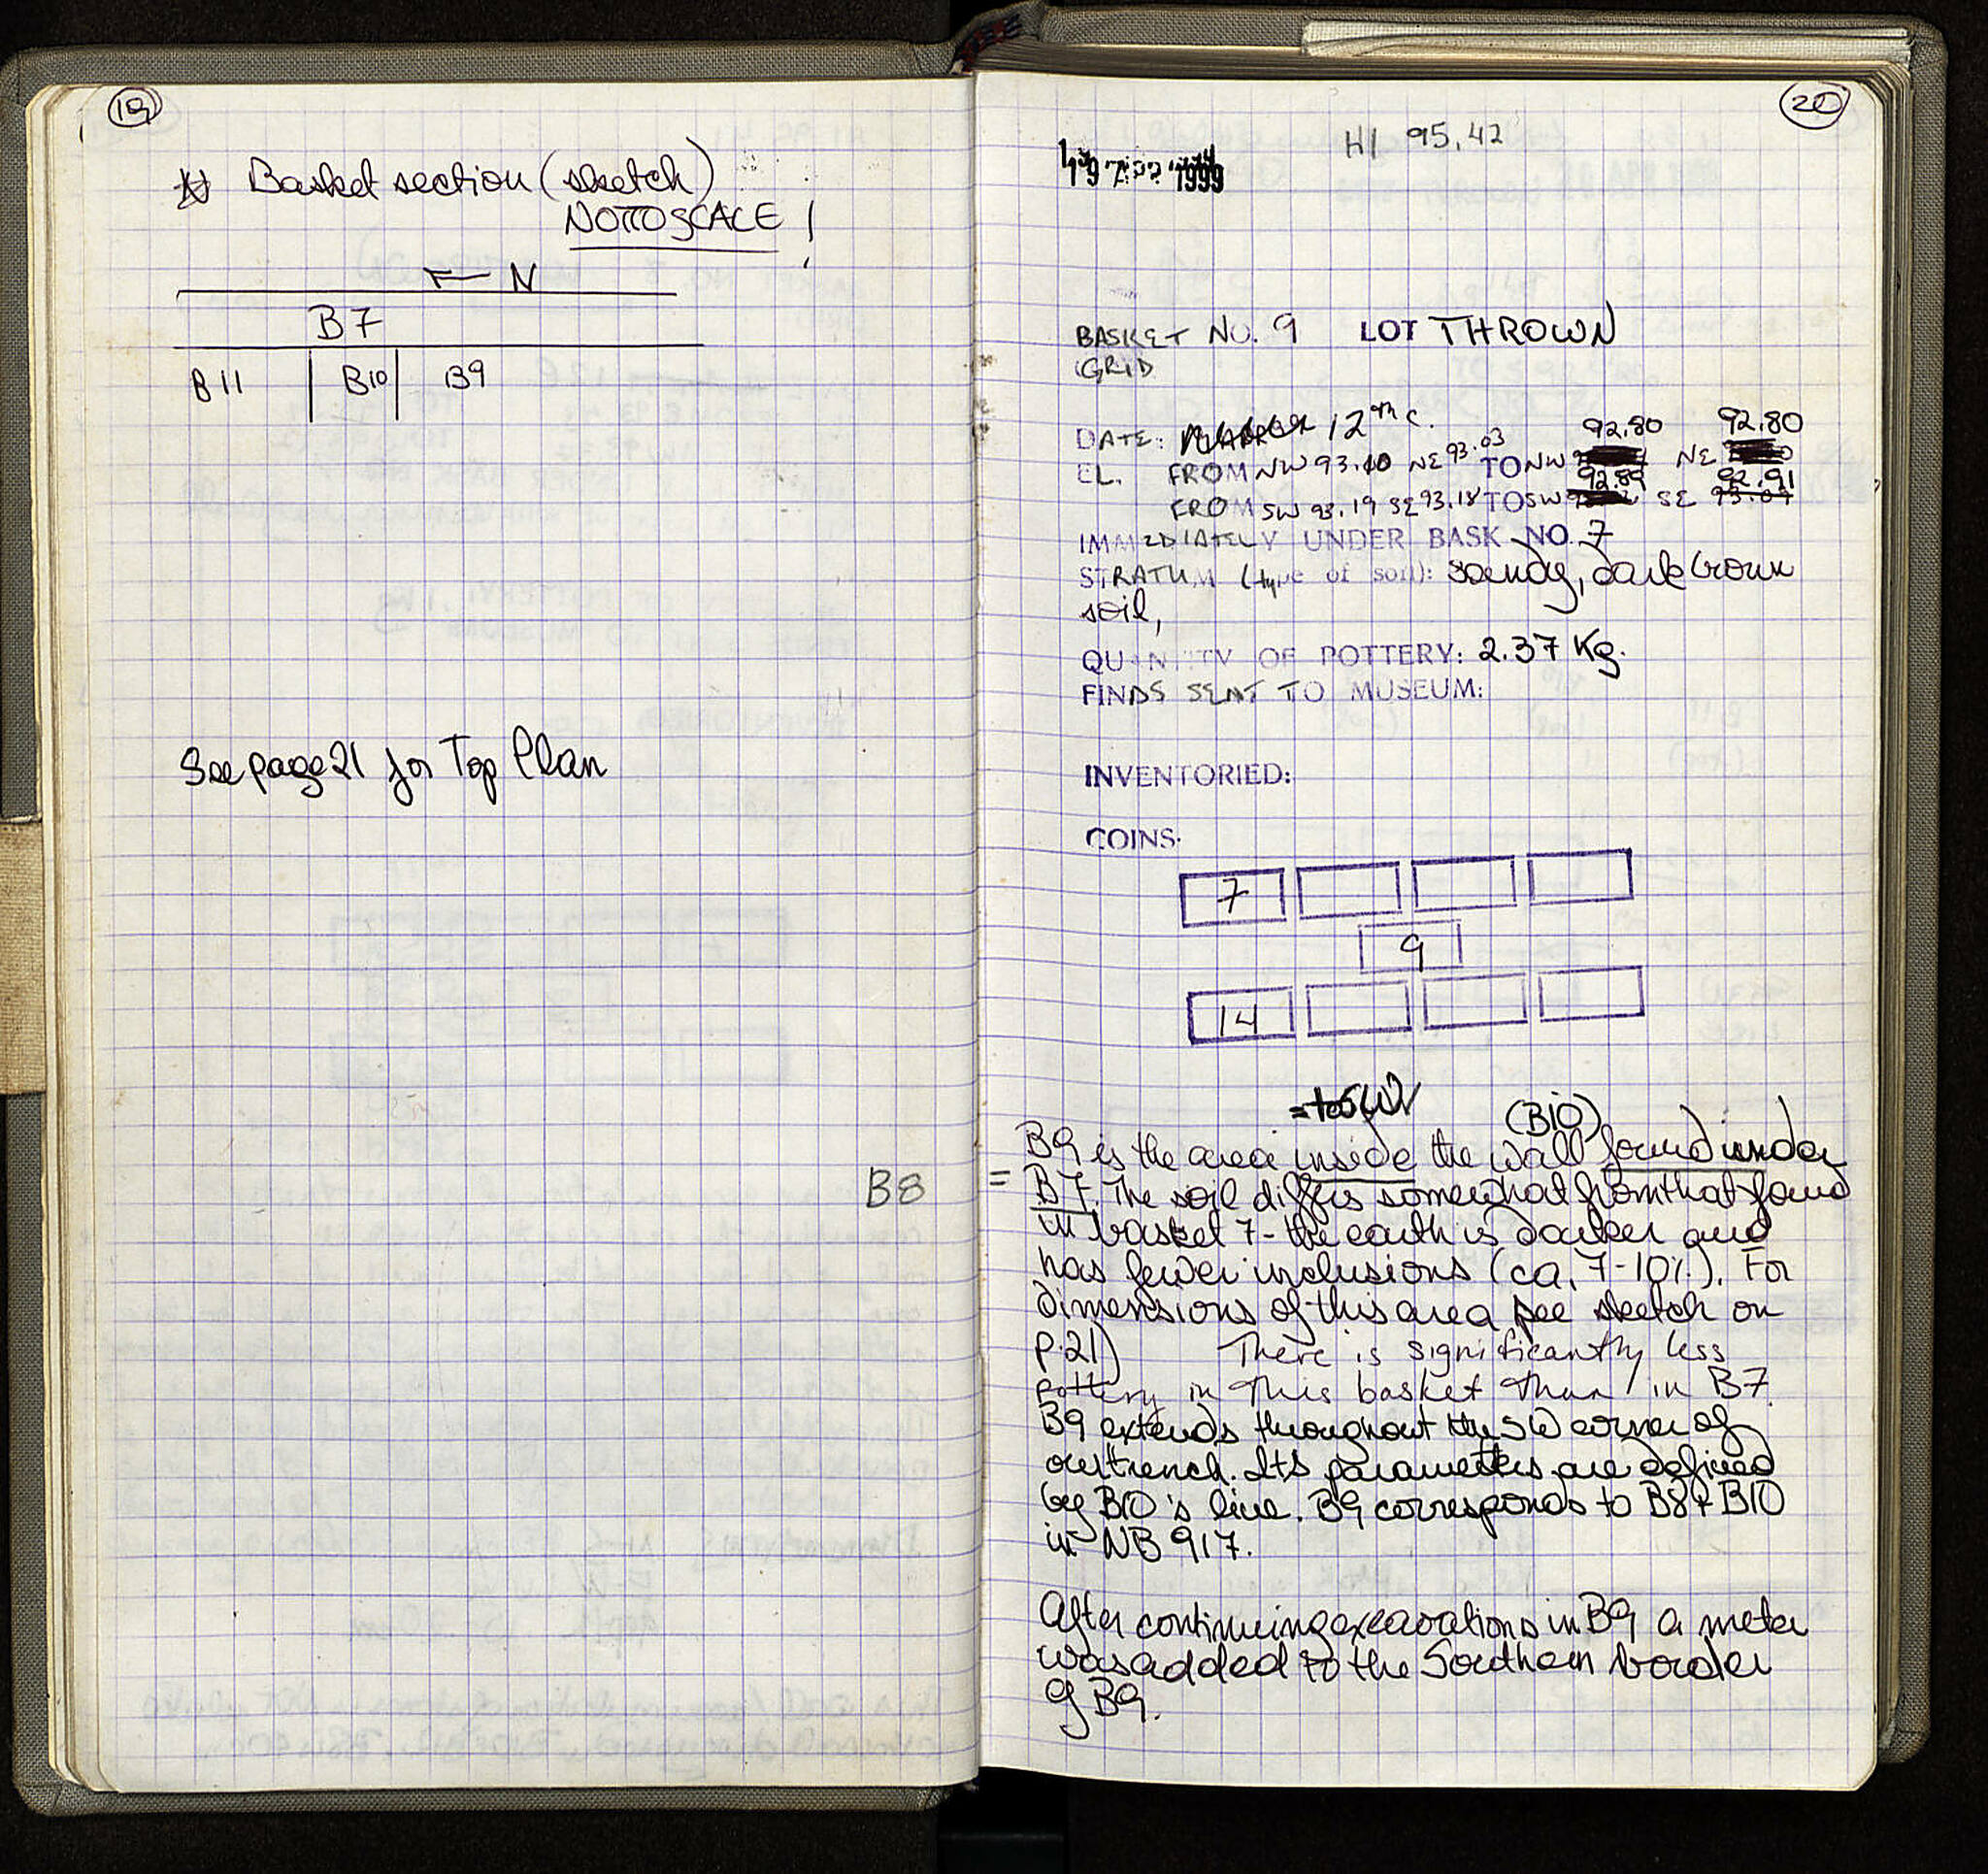 19
Basket section (sketch)
NOT TO SCALE !
← N
B7
B11 B10 B9
See page 21 for Top Plan
B8
20
HI 95.42
1999
BASKET NO. 9 LOT THROWN
GRID
DATE: 12th c.
92.80 92.80
EL. FROM NW 93.10 NE 93.03 TO NW NE
92.89 92.91
FROM SW 93.19 SE 93.18 TO SW SE 93.07
IMMEDIATELY UNDER BASK NO. 7
STRATUM (type of soil): sandy, dark brown
soil,
QUANTITY OF POTTERY: 2.37 Kg.
FINDS SENT TO MUSEUM:
INVENTORIED:
COINS:
7
9
14
= to SW
(B10)
B9 is the area inside the wall found under
= B7. The soil differs somewhat from that found
in basket 7 - the earth is darker and
has fewer inclusions (ca. 7-10%). For
dimensions of this area see sketch on
p. 21) There is significantly less
pottery in this basket than in B7.
B9 extends throughout the SW corner of
our trench. Its parameters are defined
by B10's line. B9 corresponds to B8 + B10
in NB 917.
After continuing excavations in B9 a meter
was added to the Southern border
of B9.